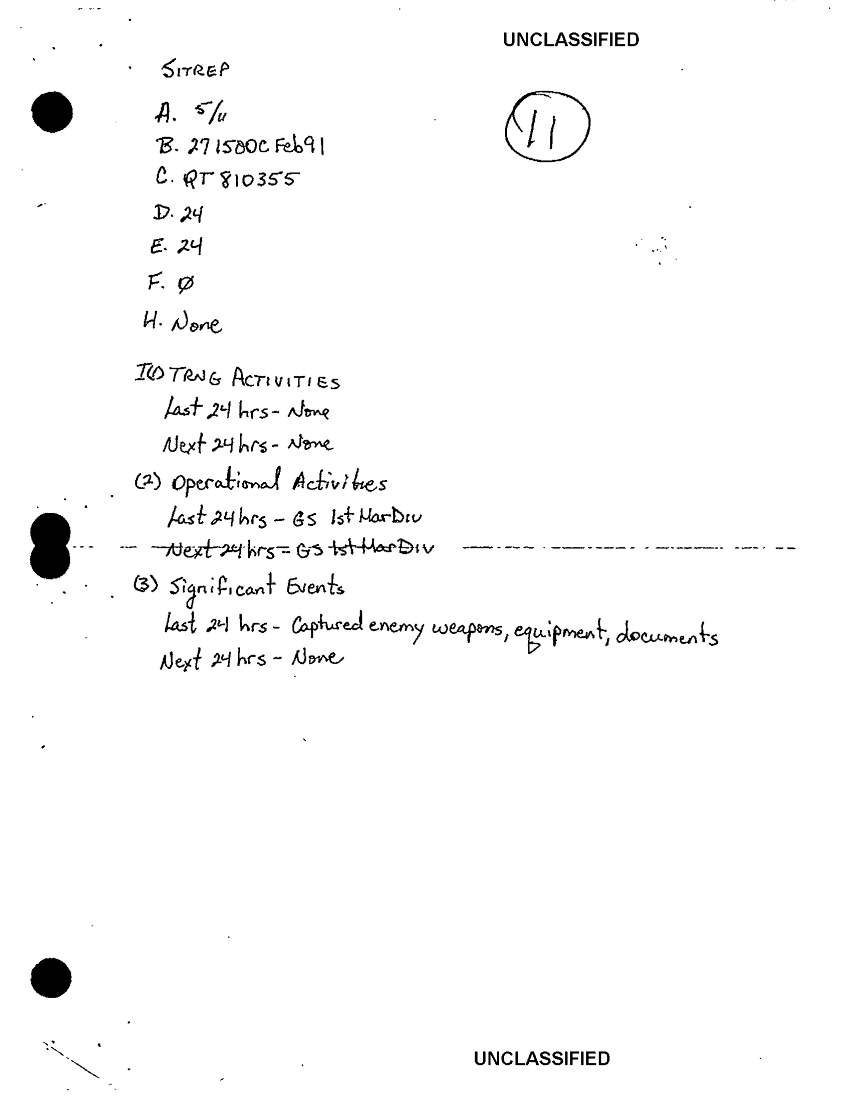 UNCLASSIFIED
SITREP
11
A. S/U
B. 271500C Feb 91
C. QT 810355
D. 24
E. 24
F. Ø
H. None
I(1) TRNG ACTIVITIES
Last 24 hrs - None
Next 24 hrs - None
(2) Operational Activities
Last 24 hrs - GS 1st MarDiv
Next 24 hrs - GS 1st MarDiv
(3) Significant Events
Last 24 hrs - Captured enemy weapons, equipment, documents
Next 24 hrs - None
UNCLASSIFIED